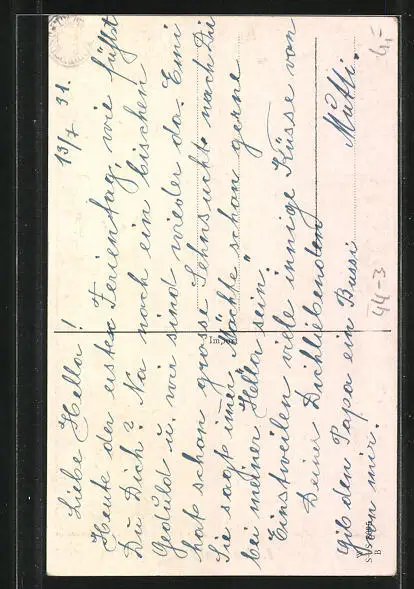 13/7 31.
Liebe Hella!
Heute der erste Ferientag, wie fühlst
Du Dich? Na noch ein bischen
Geduld u. wir sind wieder da. Emi
hat schon grosse Sehnsucht nach Dir
Sie sagt imer, "Möchte schon gerne
bei meiner Hella sein".
Einstweilen viele innige Küsse von
Deiner Dichliebenden
Mutti.
gib den Papa ein Bussi
von mir.
Import
44-3
4,-